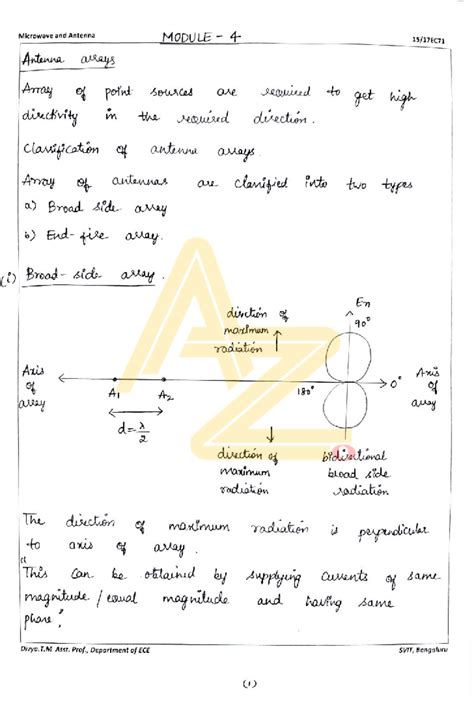 Microwave and Antenna
MODULE - 4
15/17EC71
Antenna arrays
Array of point sources are required to get high
directivity in the required direction.
Classification of antenna arrays.
Array of antennas are classified into two types
a) Broad side array
b) End-fire array.
(i) Broad-side array.
direction of
maximum
radiation
En
90°
Axis
of
array
A1
A2
180°
0°
Axis
of
array
d = λ/2
direction of
maximum
radiation
bidirectional
broad side
radiation
The direction of maximum radiation is perpendicular
to axis of array.
"This can be obtained by supplying currents of same
magnitude / equal magnitude and having same
phase",
Divya.T.M Asst. Prof., Department of ECE
SVIT, Bengaluru
(1)
AZ